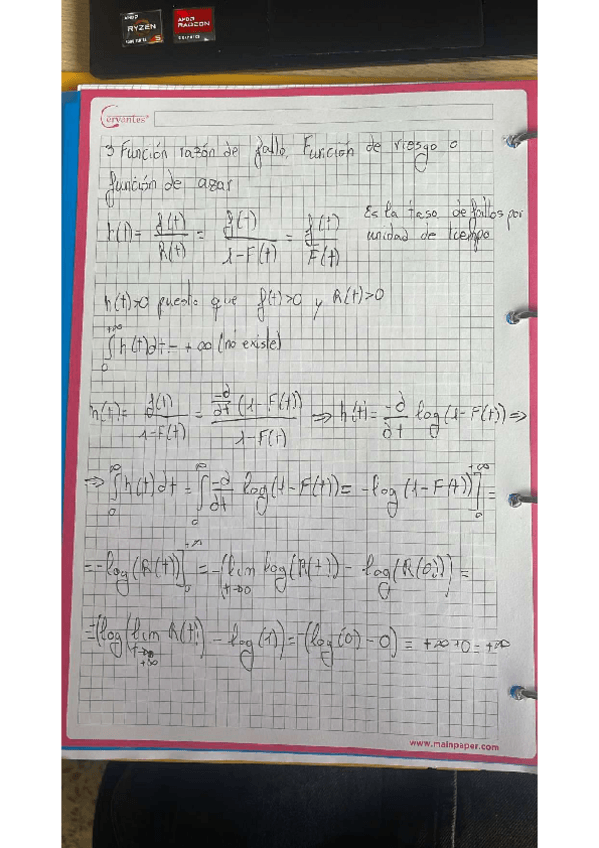 AMD
RYZEN
5
AMD
RADEON
GRAPHICS
Cervantes
3 Función razón de fallo. Función de riesgo o
función de azar
h(t) = f(t)/R(t) = f(t)/(1-F(t)) = f(t)/F̄(t)
Es la tasa de fallos por
unidad de tiempo
h(t)>0 puesto que f(t)>0 y R(t)>0
∫₀^{+∞} h(t)dt = +∞ (no existe)
h(t) = f(t)/(1-F(t)) = (-∂/∂t (1-F(t)))/(1-F(t)) ⟹ h(t) = -∂/∂t log(1-F(t)) ⟹
⟹ ∫₀^∞ h(t)dt = ∫₀^∞ -∂/∂t log(1-F(t)) = -log(1-F(t))]₀^{+∞} =
= -log(R(t))]₀^{+∞} = -(lim_{t→∞} log(R(t)) - log(R(0))) =
= -(log(lim_{t→+∞} R(t)) - log(1)) = -(log(0) - 0) = +∞+0 = +∞
www.mainpaper.com